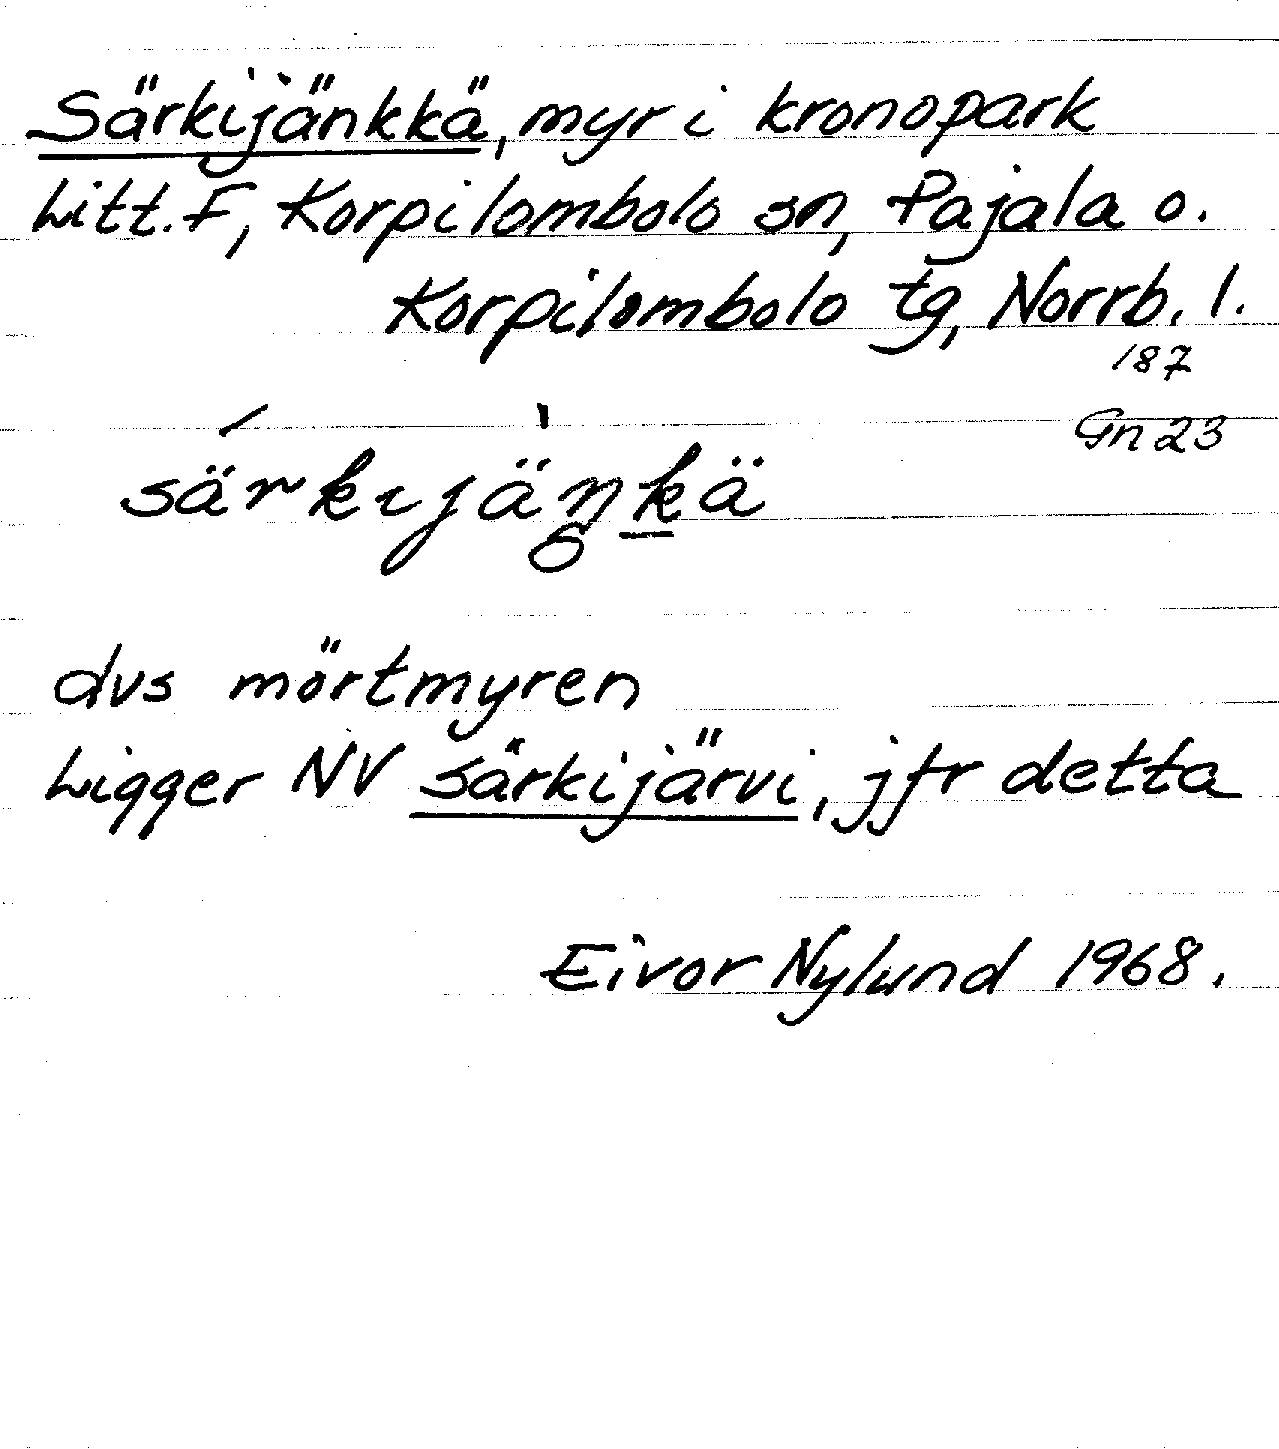 Särkijänkkä, myr i kronopark
Litt. F, Korpilombolo sn, Pajala o.
Korpilombolo tg, Norrb. l.
187
Gn 23
särkɩjäŋkä
dvs mörtmyren
Ligger NV Särkijärvi, jfr detta
Eivor Nylund 1968.